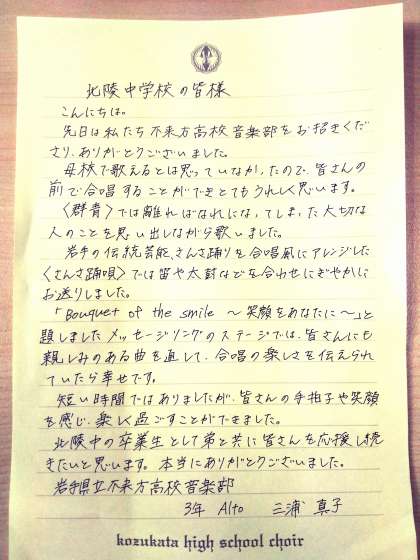 北陵中学校の皆様
こんにちは。
先日は私たち不来方高校音楽部をお招きくだ
さり、ありがとうございました。
母校で歌えるとは思っていなかったので、皆さんの
前で合唱することができとてもうれしく思います。
〈群青〉では離ればなれになってしまった大切な
人のことを思い出しながら歌いました。
岩手の伝統芸能、さんさ踊りを合唱風にアレンジした
〈さんさ踊唄〉では笛や太鼓などを合わせにぎやかに
お送りしました。
「Bouquet of the smile ～笑顔をあなたに～」と
題しましたメッセージソングのステージでは、皆さんにも
親しみのある曲を通して、合唱の楽しさを伝えられ
ていたら幸せです。
短い時間ではありましたが、皆さんの手拍子や笑顔
を感じ、楽しく過ごすことができました。
北陵中の卒業生として弟と共に皆さんを応援し続
きたいと思います。本当にありがとうございました。
岩手県立不来方高校音楽部
3年 Alto 三浦 真子
kozukata high school choir